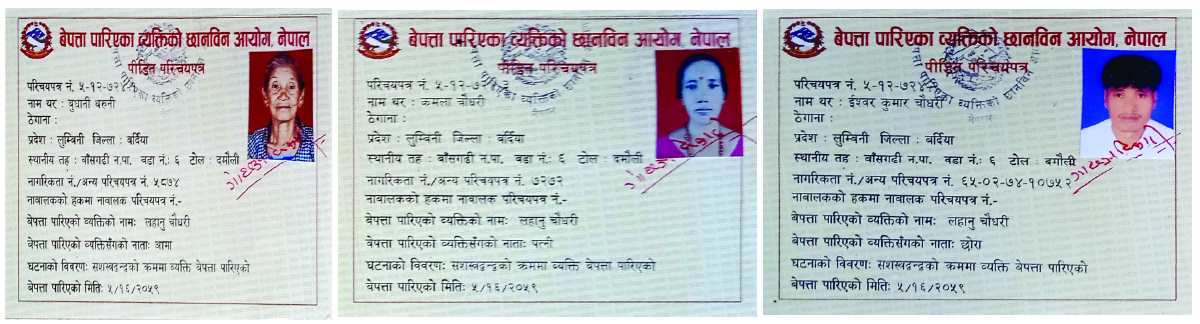 बेपत्ता पारिएका व्यक्तिको छानविन आयोग, नेपाल
पीडित परिचयपत्र
परिचयपत्र नं. ५-१२-७२
नाम थर : बुधानी थरुनी
ठेगाना :
प्रदेश : लुम्बिनी जिल्ला : बर्दिया
स्थानीय तह : बाँसगढी न.पा. वडा नं.: ६ टोल : दमौली
नागरिकता नं./अन्य परिचयपत्र नं. ५८७४
नाबालकको हकमा नाबालक परिचयपत्र नं.-
बेपत्ता पारिएको व्यक्तिको नामः लहानु चौधरी
बेपत्ता पारिएको व्यक्तिसँगको नाताः आमा
घटनाको विवरणः सशस्त्रद्वन्द्वको क्रममा व्यक्ति बेपत्ता पारिएको
बेपत्ता पारिएको मितिः ५/१६/२०५९
बेपत्ता पारिएका व्यक्तिको छानविन आयोग, नेपाल
पीडित परिचयपत्र
परिचयपत्र नं. ५-१२-७२
नाम थर : कमला चौधरी
ठेगाना :
प्रदेश : लुम्बिनी जिल्ला : बर्दिया
स्थानीय तह : बाँसगढी न.पा. वडा नं.: ६ टोल : दमौली
नागरिकता नं./अन्य परिचयपत्र नं. ७२७२
नाबालकको हकमा नाबालक परिचयपत्र नं.-
बेपत्ता पारिएको व्यक्तिको नामः लहानु चौधरी
बेपत्ता पारिएको व्यक्तिसँगको नाताः पत्नी
घटनाको विवरणः सशस्त्रद्वन्द्वको क्रममा व्यक्ति बेपत्ता पारिएको
बेपत्ता पारिएको मितिः ५/१६/२०५९
बेपत्ता पारिएका व्यक्तिको छानविन आयोग, नेपाल
पीडित परिचयपत्र
परिचयपत्र नं. ५-१२-७२४
नाम थर : ईश्वर कुमार चौधरी
ठेगाना :
प्रदेश : लुम्बिनी जिल्ला : बर्दिया
स्थानीय तह : बाँसगढी न.पा. वडा नं.: ६ टोल : बगौली
नागरिकता नं./अन्य परिचयपत्र नं. ६५-०२-७४-१०७५२
नाबालकको हकमा नाबालक परिचयपत्र नं.-
बेपत्ता पारिएको व्यक्तिको नामः लहानु चौधरी
बेपत्ता पारिएको व्यक्तिसँगको नाताः छोरा
घटनाको विवरणः सशस्त्रद्वन्द्वको क्रममा व्यक्ति बेपत्ता पारिएको
बेपत्ता पारिएको मितिः ५/१६/२०५९